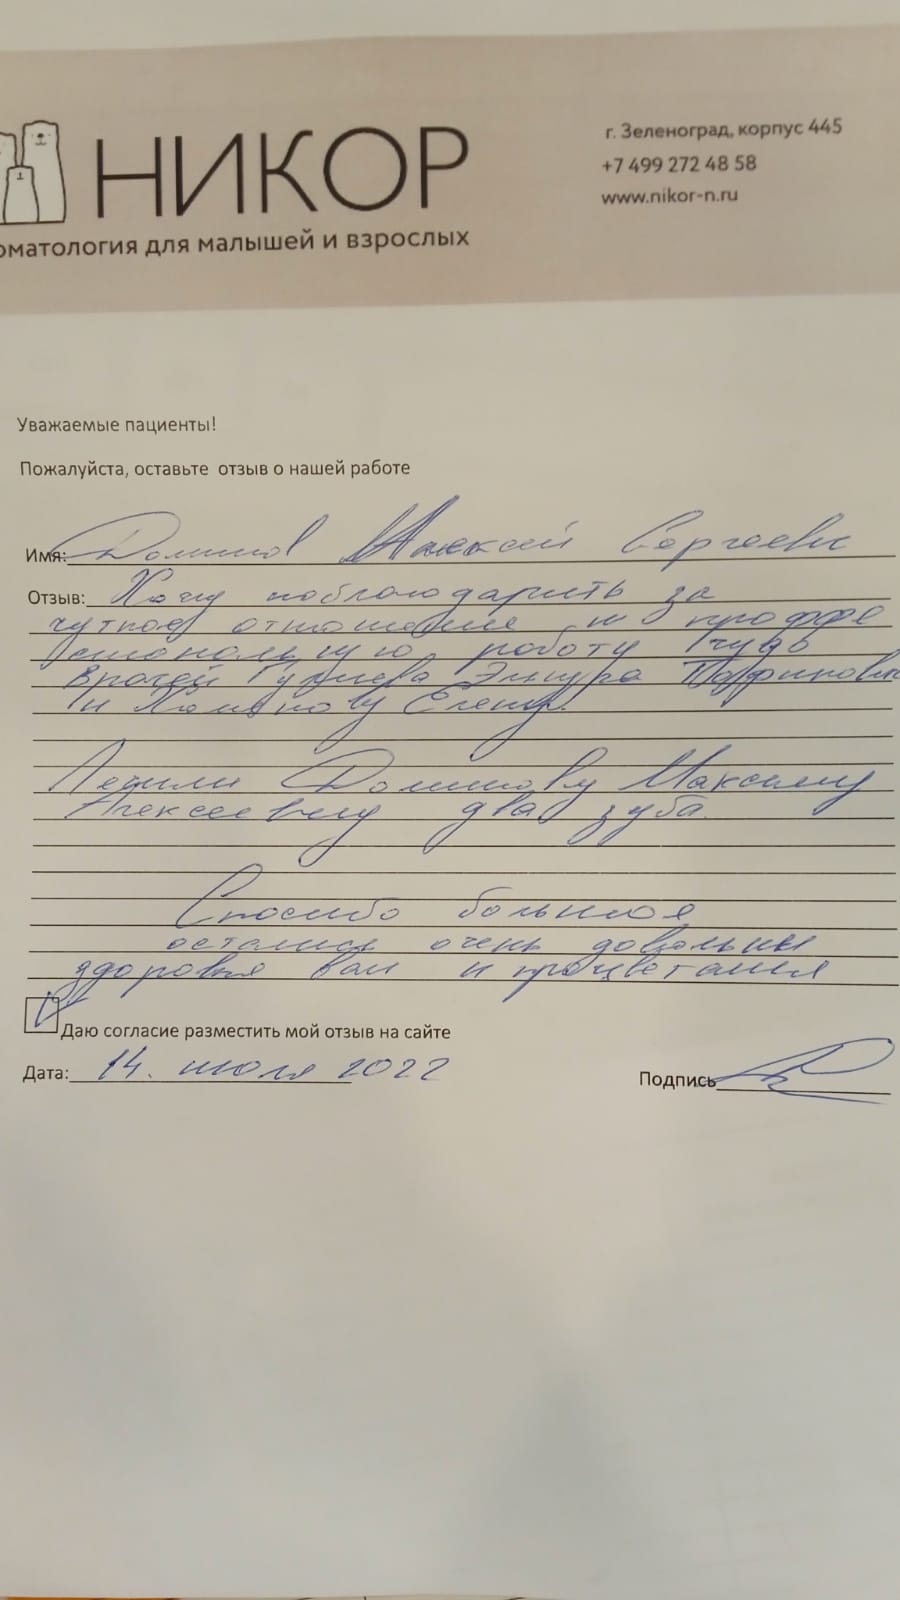 НИКОР
г. Зеленоград, корпус 445
+7 499 272 48 58
www.nikor-n.ru
оматология для малышей и взрослых
Уважаемые пациенты!
Пожалуйста, оставьте отзыв о нашей работе
Имя: Алексей Сергеевич
Отзыв: Хочу поблагодарить за
чуткое отношение и проффе
сиональную работу чудо
врачей Эльнура
и Елену.
Лечили Максиму
Алексеевичу два зуба.
Спасибо большое
остались очень довольны
здоровья вам и процветания
Даю согласие разместить мой отзыв на сайте
Дата: 14. июля 2022
Подпись